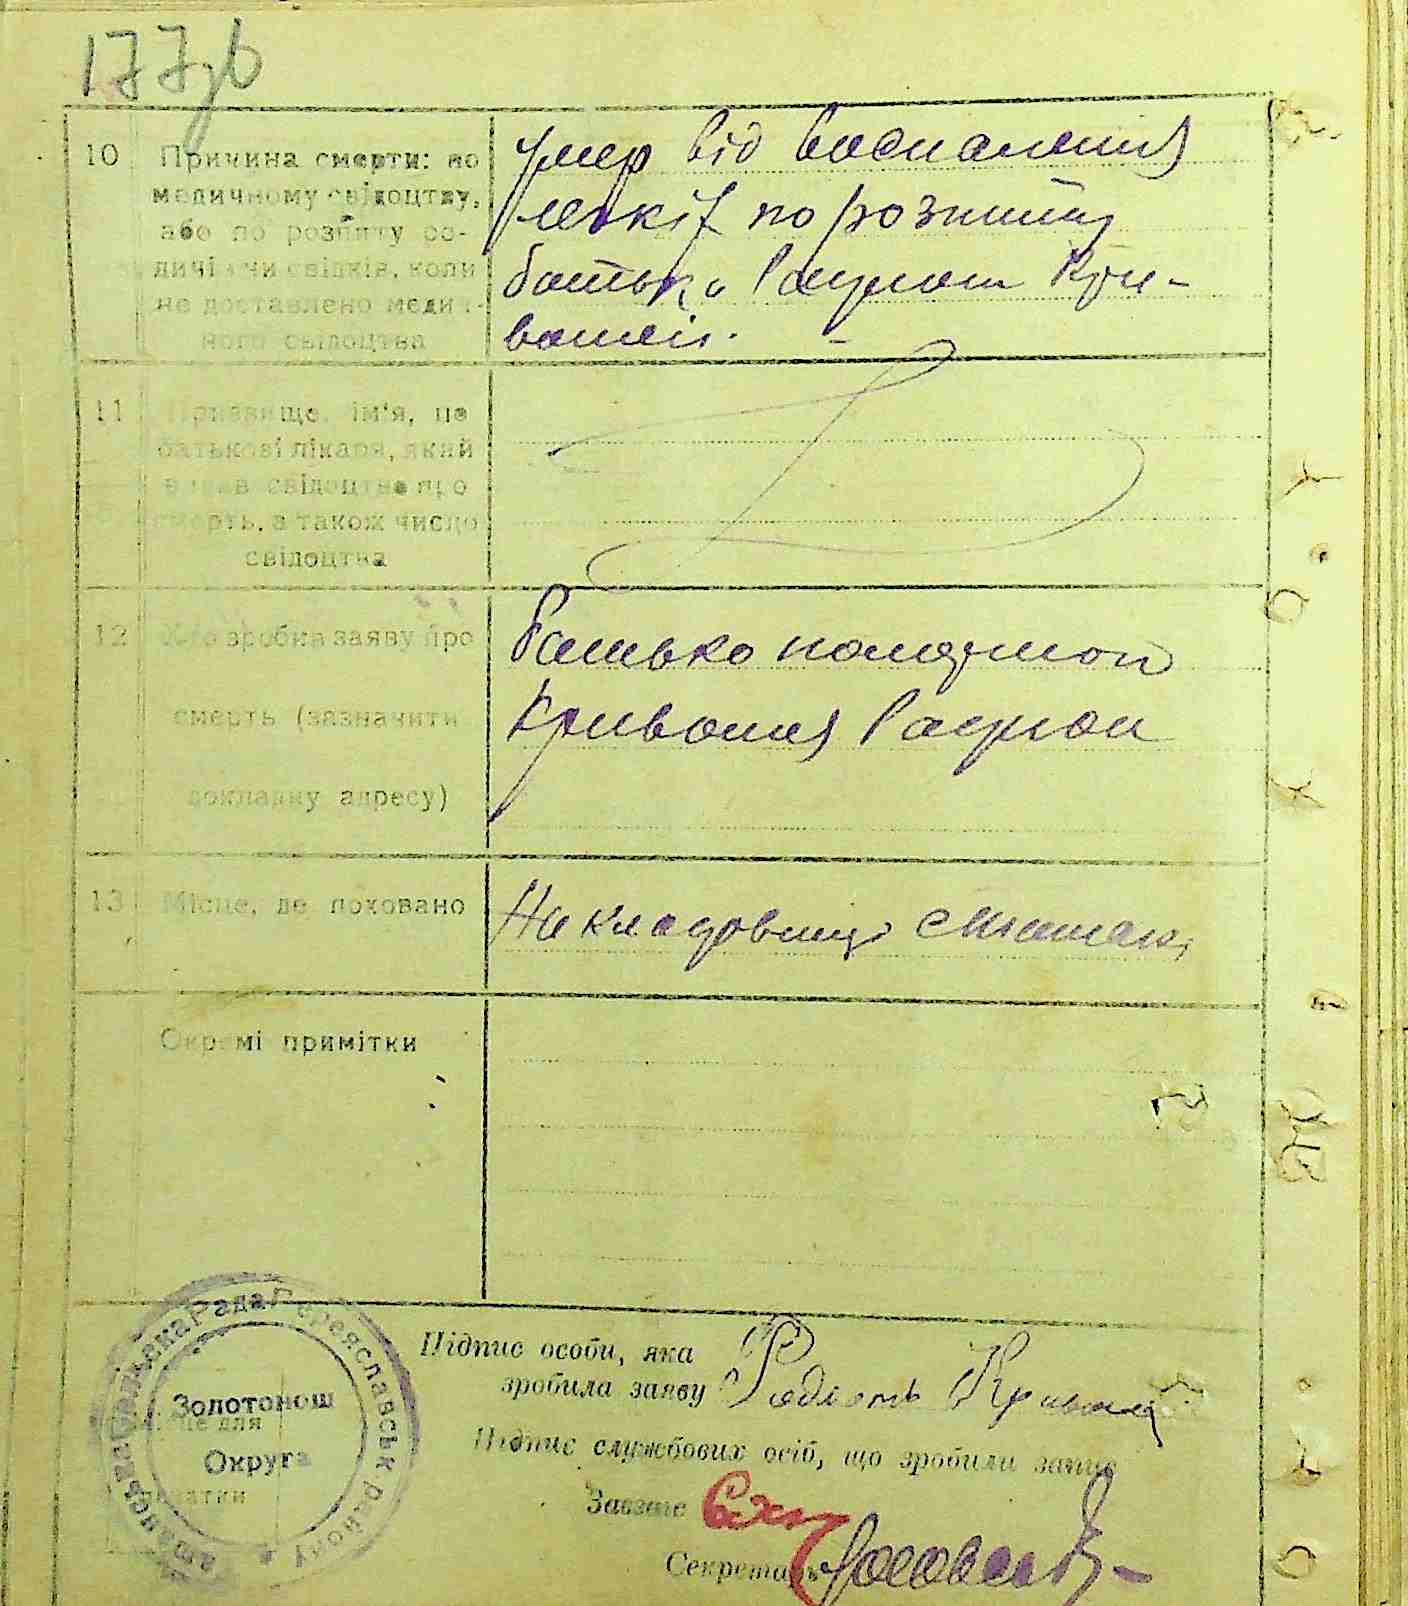 177зв
10 Причина смерти: по
медичному свідоцтву,
або по розпиту ро-
дичів чи свідків, коли
не доставлено медич-
ного свідоцтва
умер від воспаления
легкіх по розпиту
батька Кри-
вошеї.
11 Призвище, ім'я, по
батькові лікаря, який
видав свідоцтво про
смерть, а також число
свідоцтва
12 Хто зробив заяву про
смерть (зазначити
докладну адресу)
Батько
Кривошея
13 Місце, де поховано
На кладовищі
Окремі примітки
Сільська Рада Переяславськ району
Золотонош
Округа
Місце для
печатки
Підпис особи, яка
зробила заяву
Підпис службових осіб, що зробили запис
Завзаге
Секретарь